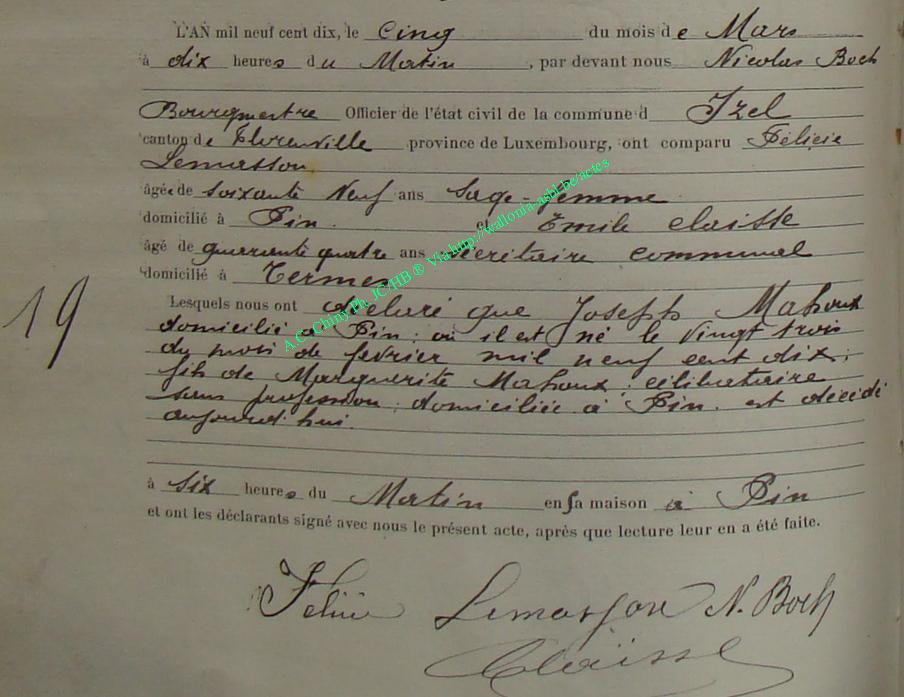 L'AN mil neuf cent dix, le Cinq du mois de Mars
à dix heures du Matin, par devant nous Nicolas Boch
Bourgmestre Officier de l'état civil de la commune d Izel
canton de Florenville province de Luxembourg, ont comparu Félicie
Lemasson
âgée de soixante Neuf ans Sage-femme
domicilié à Pin. et Emile Claisse
âgé de quarante quatre ans secrétaire communal
domicilié à Termes
19
Lesquels nous ont déclaré que Joseph Mahoux
domicilié à Pin; où il est né le Vingt trois
du mois de février mil neuf cent dix;
fils de Marguerite Mahoux; célibataire
sans profession; domiciliée à Pin. est décédé
aujourd'hui.
à six heures du Matin en sa maison à Pin
et ont les déclarants signé avec nous le présent acte, après que lecture leur en a été faite.
Félicie Lemasson N. Boch
Claisse
A.C. Chiny Ph. JC/HB ® Via http://wallonia-asbl.be/actes